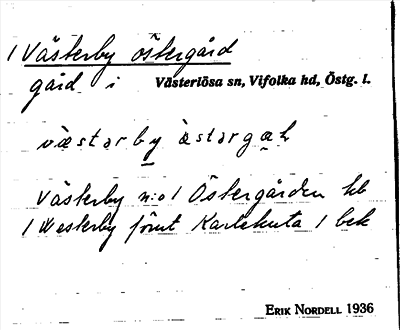 1 Västerby östergård
gård i Västerlösa sn, Vifolka hd, Östg. l.
væstərby æstərgah
Västerby n:o 1 Östergården kb
1 Westerby förut Karlskuta 1 bek
ERIK NORDELL 1936